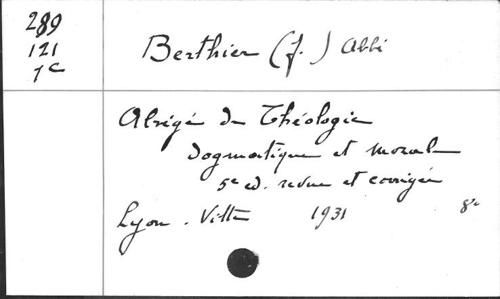 289
121
7c
Berthier (J.) Abbé
Abrégé de Théologie
dogmatique et morale
5e ed. revue et corrigée
Lyon. Vitte 1931 8°